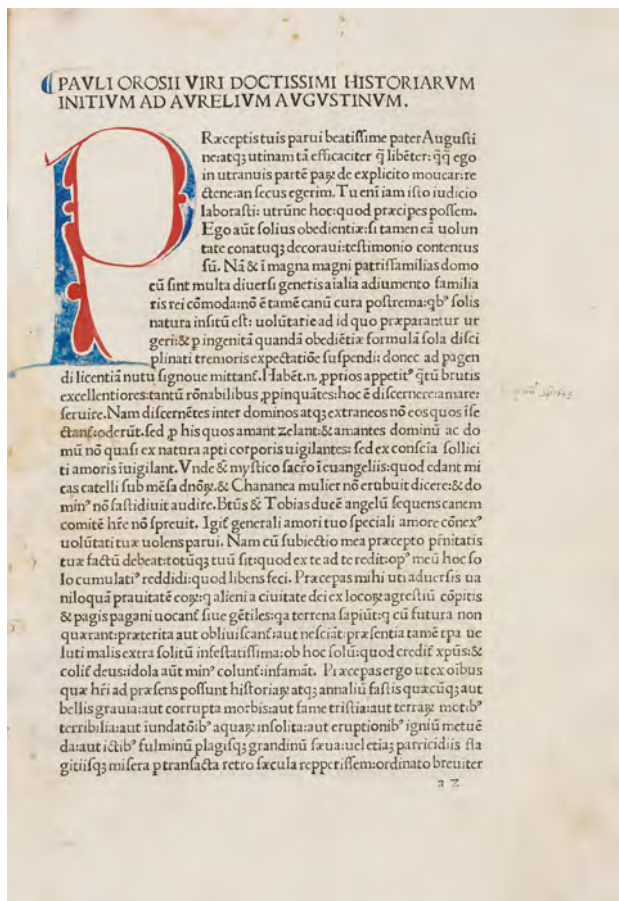 PAVLI OROSII VIRI DOCTISSIMI HISTORIARVM
INITIVM AD AVRELIVM AVGVSTINVM.
PRæceptis tuis parui beatissime pater Augusti
ne:atqꝫ utinam tā efficaciter q̄ libēter: q̄q̄ ego
in utranuis partē paꝝ de explicito mouear:re
ctene:an secus egerim. Tu eni iam isto iudicio
laborasti: utrūne hoc:quod præcipes possem.
Ego aūt solius obedientiæ:si tamen eā uolun
tate conatuqꝫ decoraui:testimonio contentus
sū. Nā & ī magna magni patrisfamilias domo
cū sint multa diuersi generis aialia adiumento familia
ris rei cōmoda:nō ē tamē canū cura postrema:qbꝰ solis
natura insitū est: uolūtarie ad id quo præparantur ur
geri:& p ingenitā quandā obediētiæ formulā sola disci
plinati tremoris expectatiōe suspendi: donec ad pagen
di licentiā nutu signoue mittant̄. Habēt.n. ꝓprios appetitꝰ q̄tū brutis
excellentiores:tantū rōnabilibus ꝓpinquātes:hoc ē discernere:amare:
seruire. Nam discernētes inter dominos atqꝫ extraneos nō eos quos īse
ctant̄:oderūt. sed ꝓ his quos amant zelant:& amantes dominū ac do
mū nō quasi ex natura apti corporis uigilantes: sed ex consciā sollici
ti amoris īuigilant. Vnde & mystico sacro ī euangeliis:quod edant mi
cas catelli sub mēsa dnōꝝ.& Chananea mulier nō erubuit dicere:& do
minꝰ nō fastidiuit audire. Btūs & Tobias ducē angelū sequens canem
comitē hr̄e nō spreuit. Igit̄ generali amori tuo speciali amore cōnexꝰ
uolūtati tuæ uolens parui. Nam cū subiectio mea præcepto pr̄nitatis
tuæ factū debeat:totūqꝫ tuū sit:quod ex te ad te redit:opꝰ meū hoc so
lo cumulatiꝰ reddidi:quod libens feci. Præcepas mihi uti aduersis ua
niloquā prauitatē eoꝝ:q alieni a ciuitate dei ex locoꝝ agrestiū cōpitis
& pagis pagani uocant̄ siue gētiles:qa terrena sapiūt:q cū futura non
quærant:præterita aut obliuiscant̄:aut nesciāt:præsentia tamē tpa ue
luti malis extra solitū infestatissima:ob hoc solū:quod credit̄ xpūs:&
colit̄ deus:idola aūt minꝰ colunt̄:infamāt. Præcepas ergo ut ex oībus
quæ hr̄i ad præsens possunt historiaꝝ atqꝫ annaliū fastis quæcūqꝫ aut
bellis grauia:aut corrupta morbis:aut fame tristia:aut terraꝝ motibꝰ
terribilia:aut iundatōibꝰ aquaꝝ insolita:aut eruptionibꝰ igniū metuē
da:aut ictibꝰ fulminū plagisqꝫ grandinū sæua:uel etiaꝫ parricidiis fla
gitiisqꝫ misera p transacta retro sæcula repperissem:ordinato breuiter
a 2